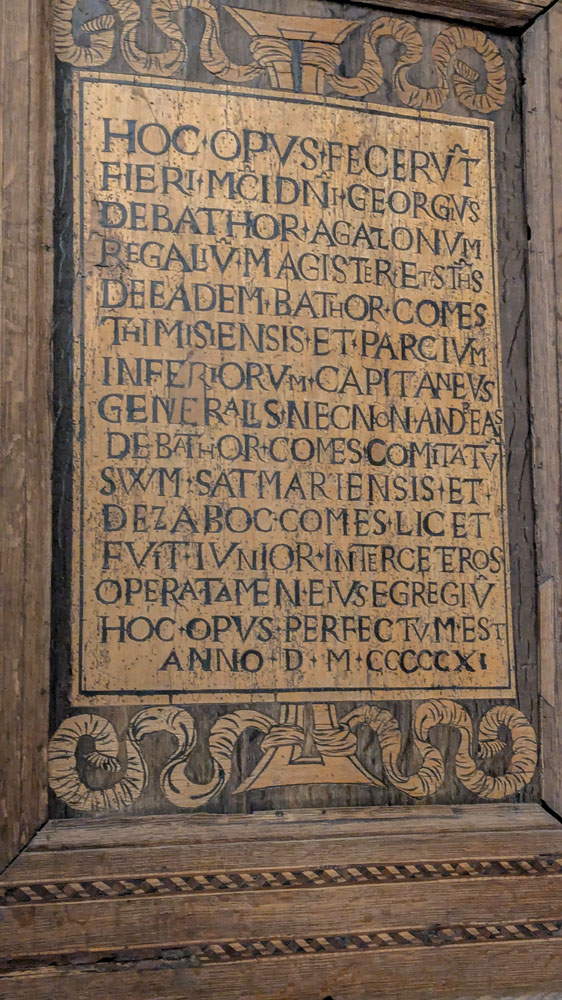 HOC·OPVS·FECERVT̃
FIERI·MC̃I DÑI·GEORGIVS
DE BATHOR·AGAZONVM
REGALIŨ·MAGISTER·ET STH̃S
DE EADEM·BATHOR·COMES
THIMISIENSIS·ET·PARCIVM
INFERIORVM·CAPITANEVS
GENERALIS·NECNON·ANDREAS
DE BATHOR·COMES·COMITATV
SWM·SATMARIENSIS·ET·
DE ZABOC·COMES·LICET
FVIT·IVNIOR·INTER CETEROS
OPERA TAMEN·EIVS EGREGIŨ
HOC·OPVS·PERFECTVM·EST
ANNO·D·M·CCCCCXI